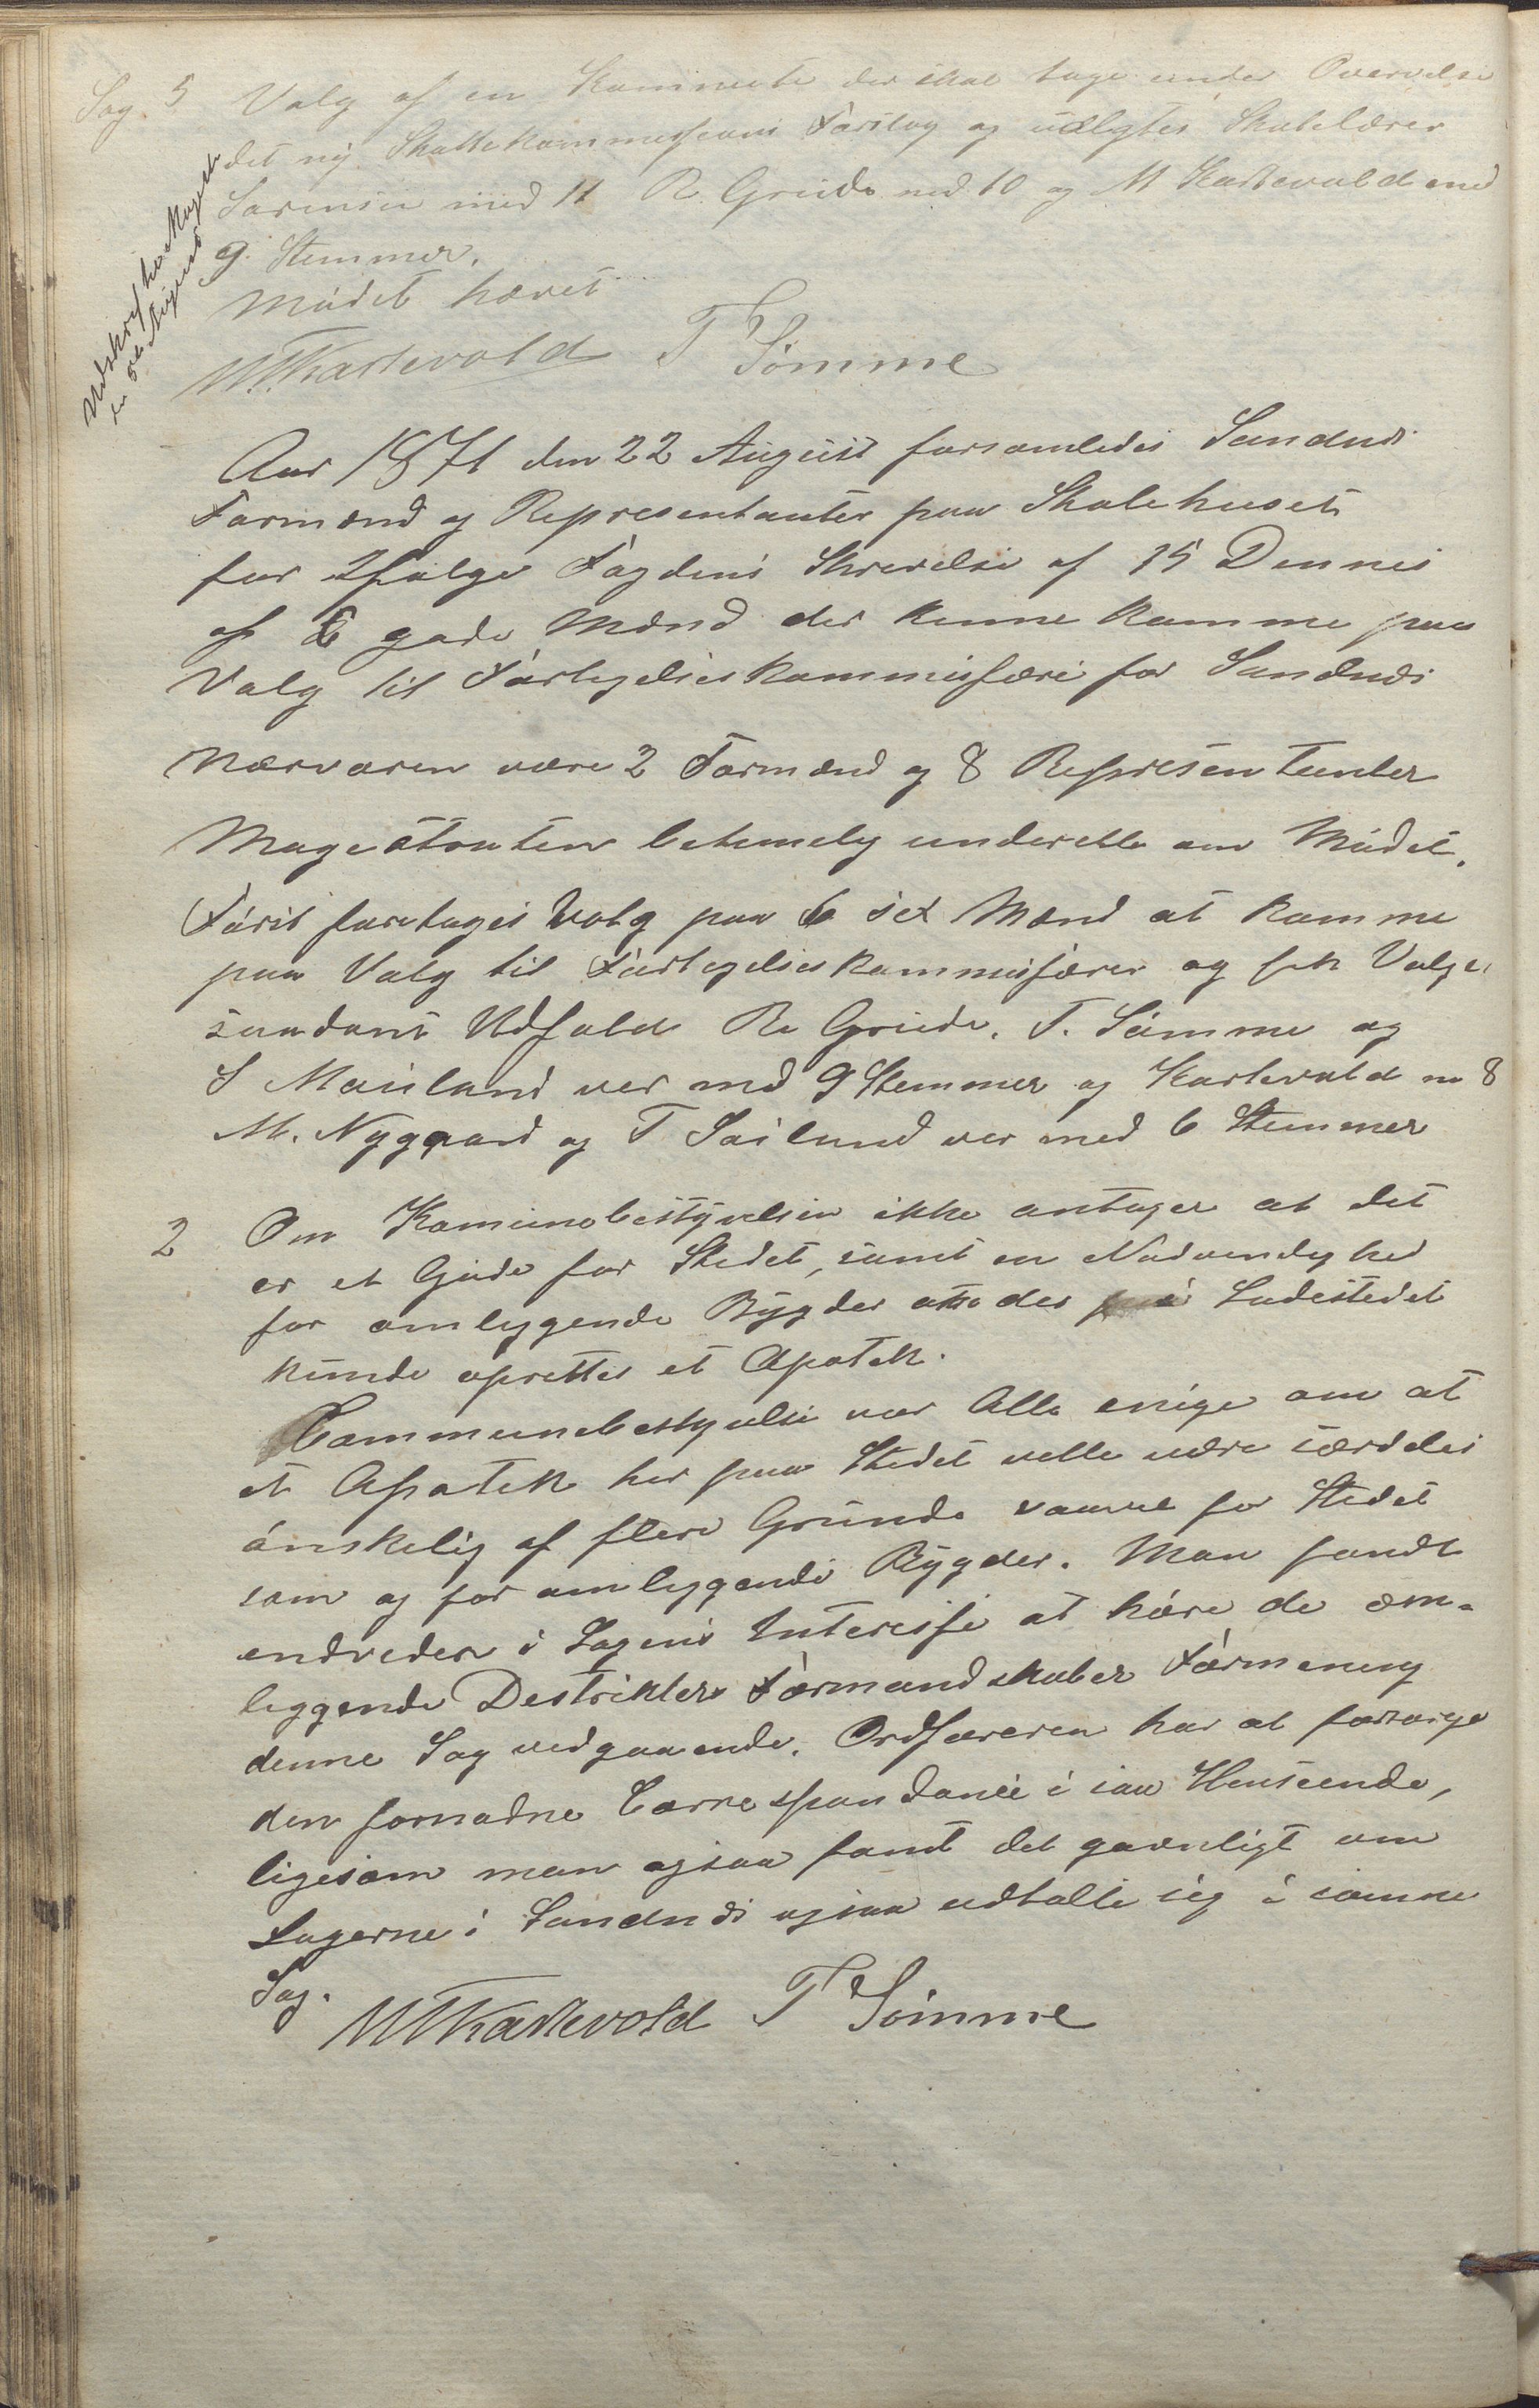 Sag. 5 Valg af en Kommite der skal tage under Overveielse
det ny Skattekommissions Forslag og valgtes Skolelærer
Sørensen med 11 R. Grude med 10 og M Kartevold med
9 Stemmer.
Mødet hævet
MTKartevold T Sömme
Udskrift
den August
Aar 1871 den 22 August forsamledes Sandnes
Formænd og Representanter paa Skolehuset
for Ifølge Fogdens Skrivelse af 15 Dennes
af 6 gode Mænd der kunne komme paa
Valg til Forligelseskommissære for Sandnæs
Nærværen være 2 Formænd og 8 Representanter
Magestraten betimelig underette om Mødet.
Først foretages Valg paa 6 sex Mænd at komme
paa Valg til Forligelseskommissærer og fik Valget
saadant Udfald R. Grude. T. Sømme og
S Mauland ver med 9 Stemmer og Kartevold m 8
M. Nygaard og T. ver med 6 Stemmer
2 Om Komunebestyrelsen ikke antager at det
er et Gode for Stedet, samt en Nødvendighed
for omlygende Bygder at der på Ladestedet
kunde oprettes et Apotek.
Communebestyrelse var Alle enige om at
et Apotek her paa Stedet ville være særdeles
ønskelig af flere Grunde saavel for Stedet
som og for omlyggende Bygder. Man fandt
endvedere i Sagens Interesse at høre de om-
leggende Destrikters Formandskaber Formening
denne Sag vedgaaende. Ordføreren har at forsørge
den fornødne Correspondance i saa Henseende,
ligesom man ogsaa fandt det gavnligt om
Lægerne i Sandnæs ogsaa udtalte sig i samme
Sag.
MTKartevold T Sömme